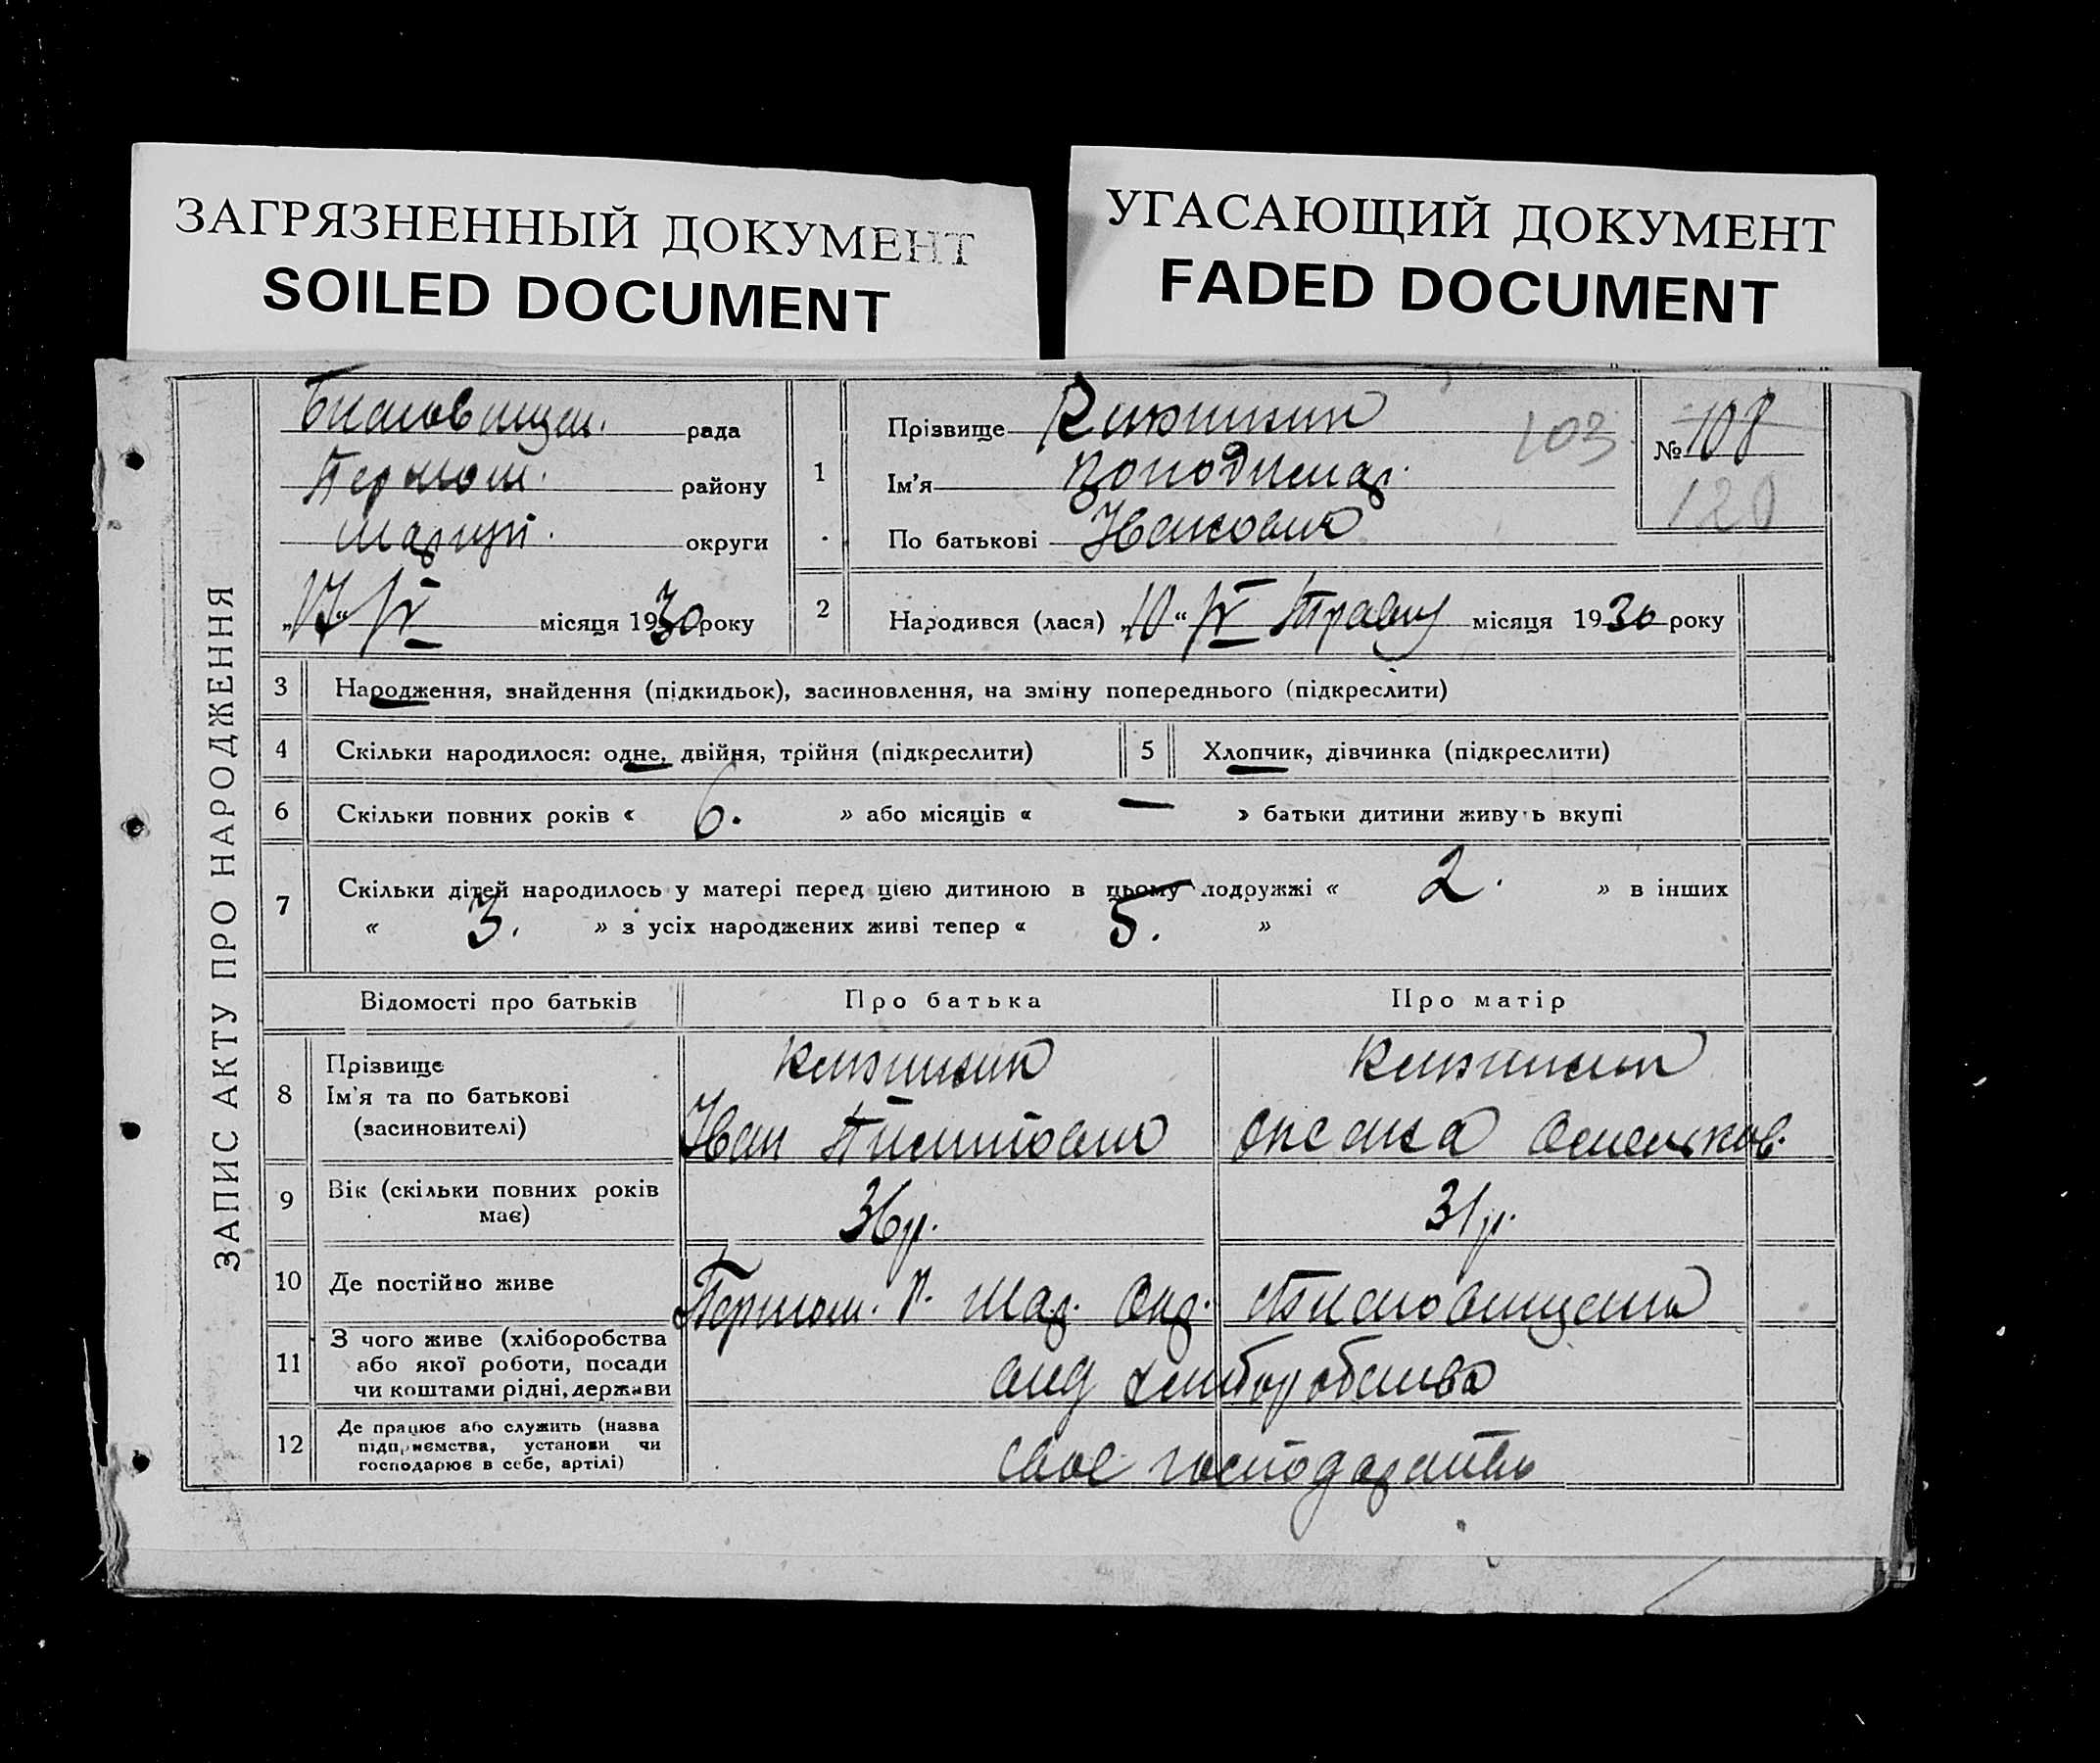 ЗАГРЯЗНЕННЫЙ ДОКУМЕНТ
SOILED DOCUMENT
УГАСАЮЩИЙ ДОКУМЕНТ
FADED DOCUMENT
ЗАПИС АКТУ ПРО НАРОДЖЕННЯ
рада
району
округи
місяця 1930 року
1
Прізвище
103
Ім'я Володимар.
По батькові Іванович
№ 108
120
2 Народився (лася) „10“ V Травня місяця 1930 року
3 Народження, знайдення (підкидьок), засиновлення, на зміну попереднього (підкреслити)
4 Скільки народилося: одне, двійня, трійня (підкреслити)
5 Хлопчик, дівчинка (підкреслити)
6 Скільки повних років « 6. » або місяців « — » батьки дитини живуть вкупі
7 Скільки дітей народилось у матері перед цією дитиною в цьому подружжі « 2. » в інших
« 3. » з усіх народжених живі тепер « 5. »
Відомості про батьків
Про батька
Про матір
8 Прізвище
Ім'я та по батькові
(засиновителі)
Іван
Оксана
9 Вік (скільки повних років
має)
36 р.
31 р.
10 Де постійно живе
Першом. р. Шад. Окр.
11 З чого живе (хліборобства
або якої роботи, посади
чи коштами рідні, держави
від хліборобства
12 Де працює або служить (назва
підприємства, установи чи
господарює в себе, артілі)
своє господарство